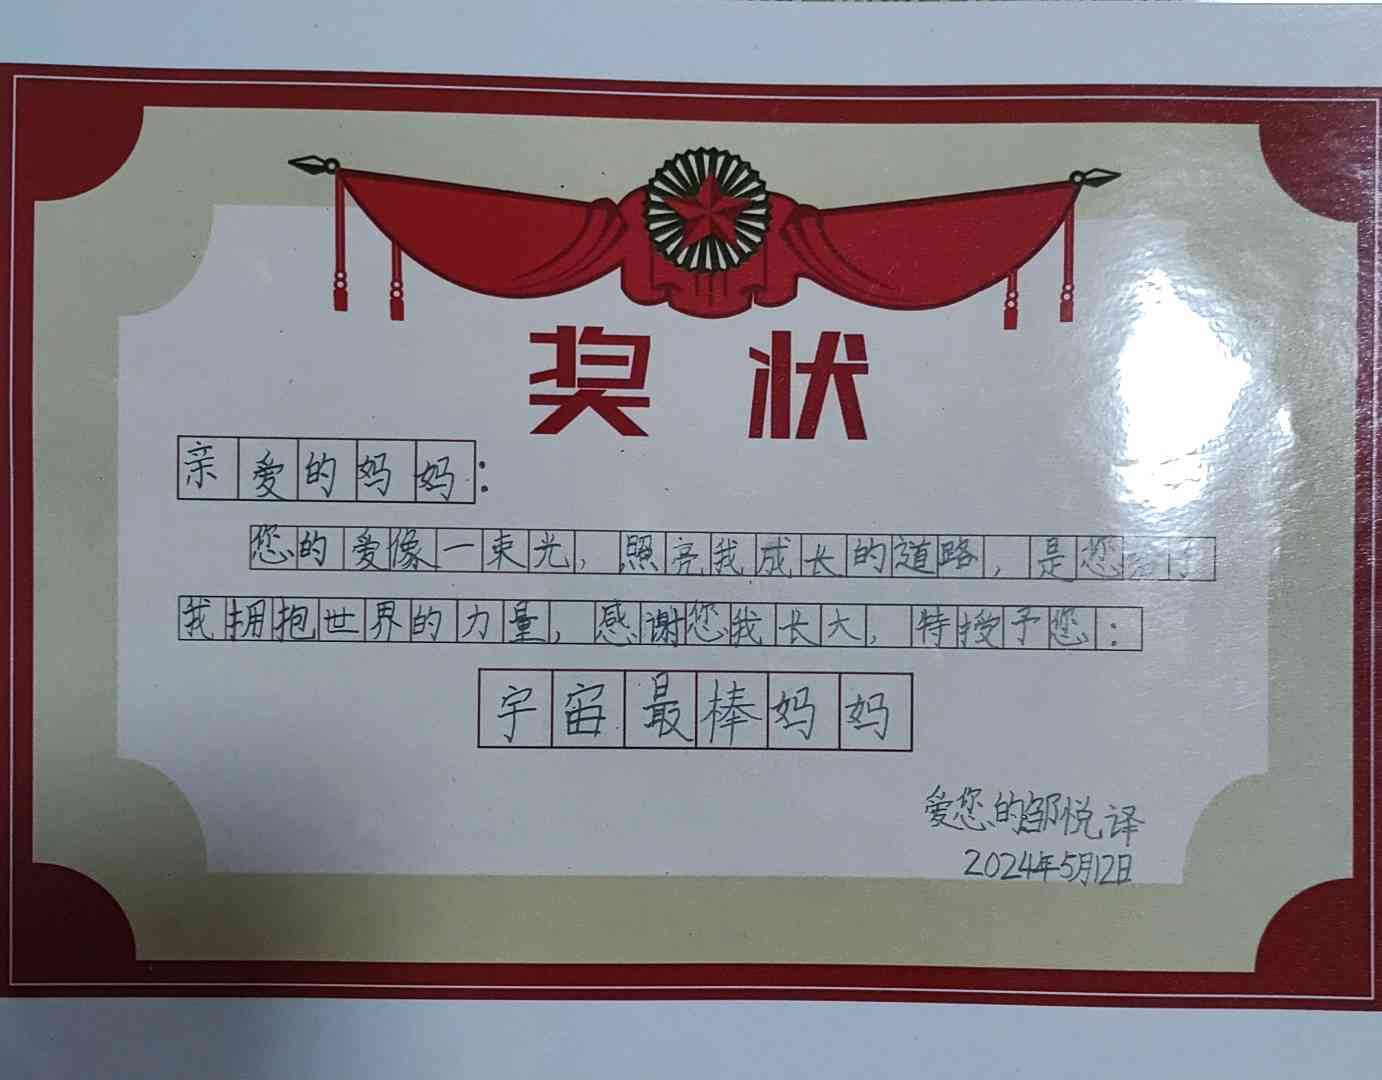 奖状
亲爱的妈妈:
您的爱像一束光,照亮我成长的道路,是您给了
我拥抱世界的力量,感谢您我长大,特授予您:
宇宙最棒妈妈
爱您的邹悦译
2024年5月12日